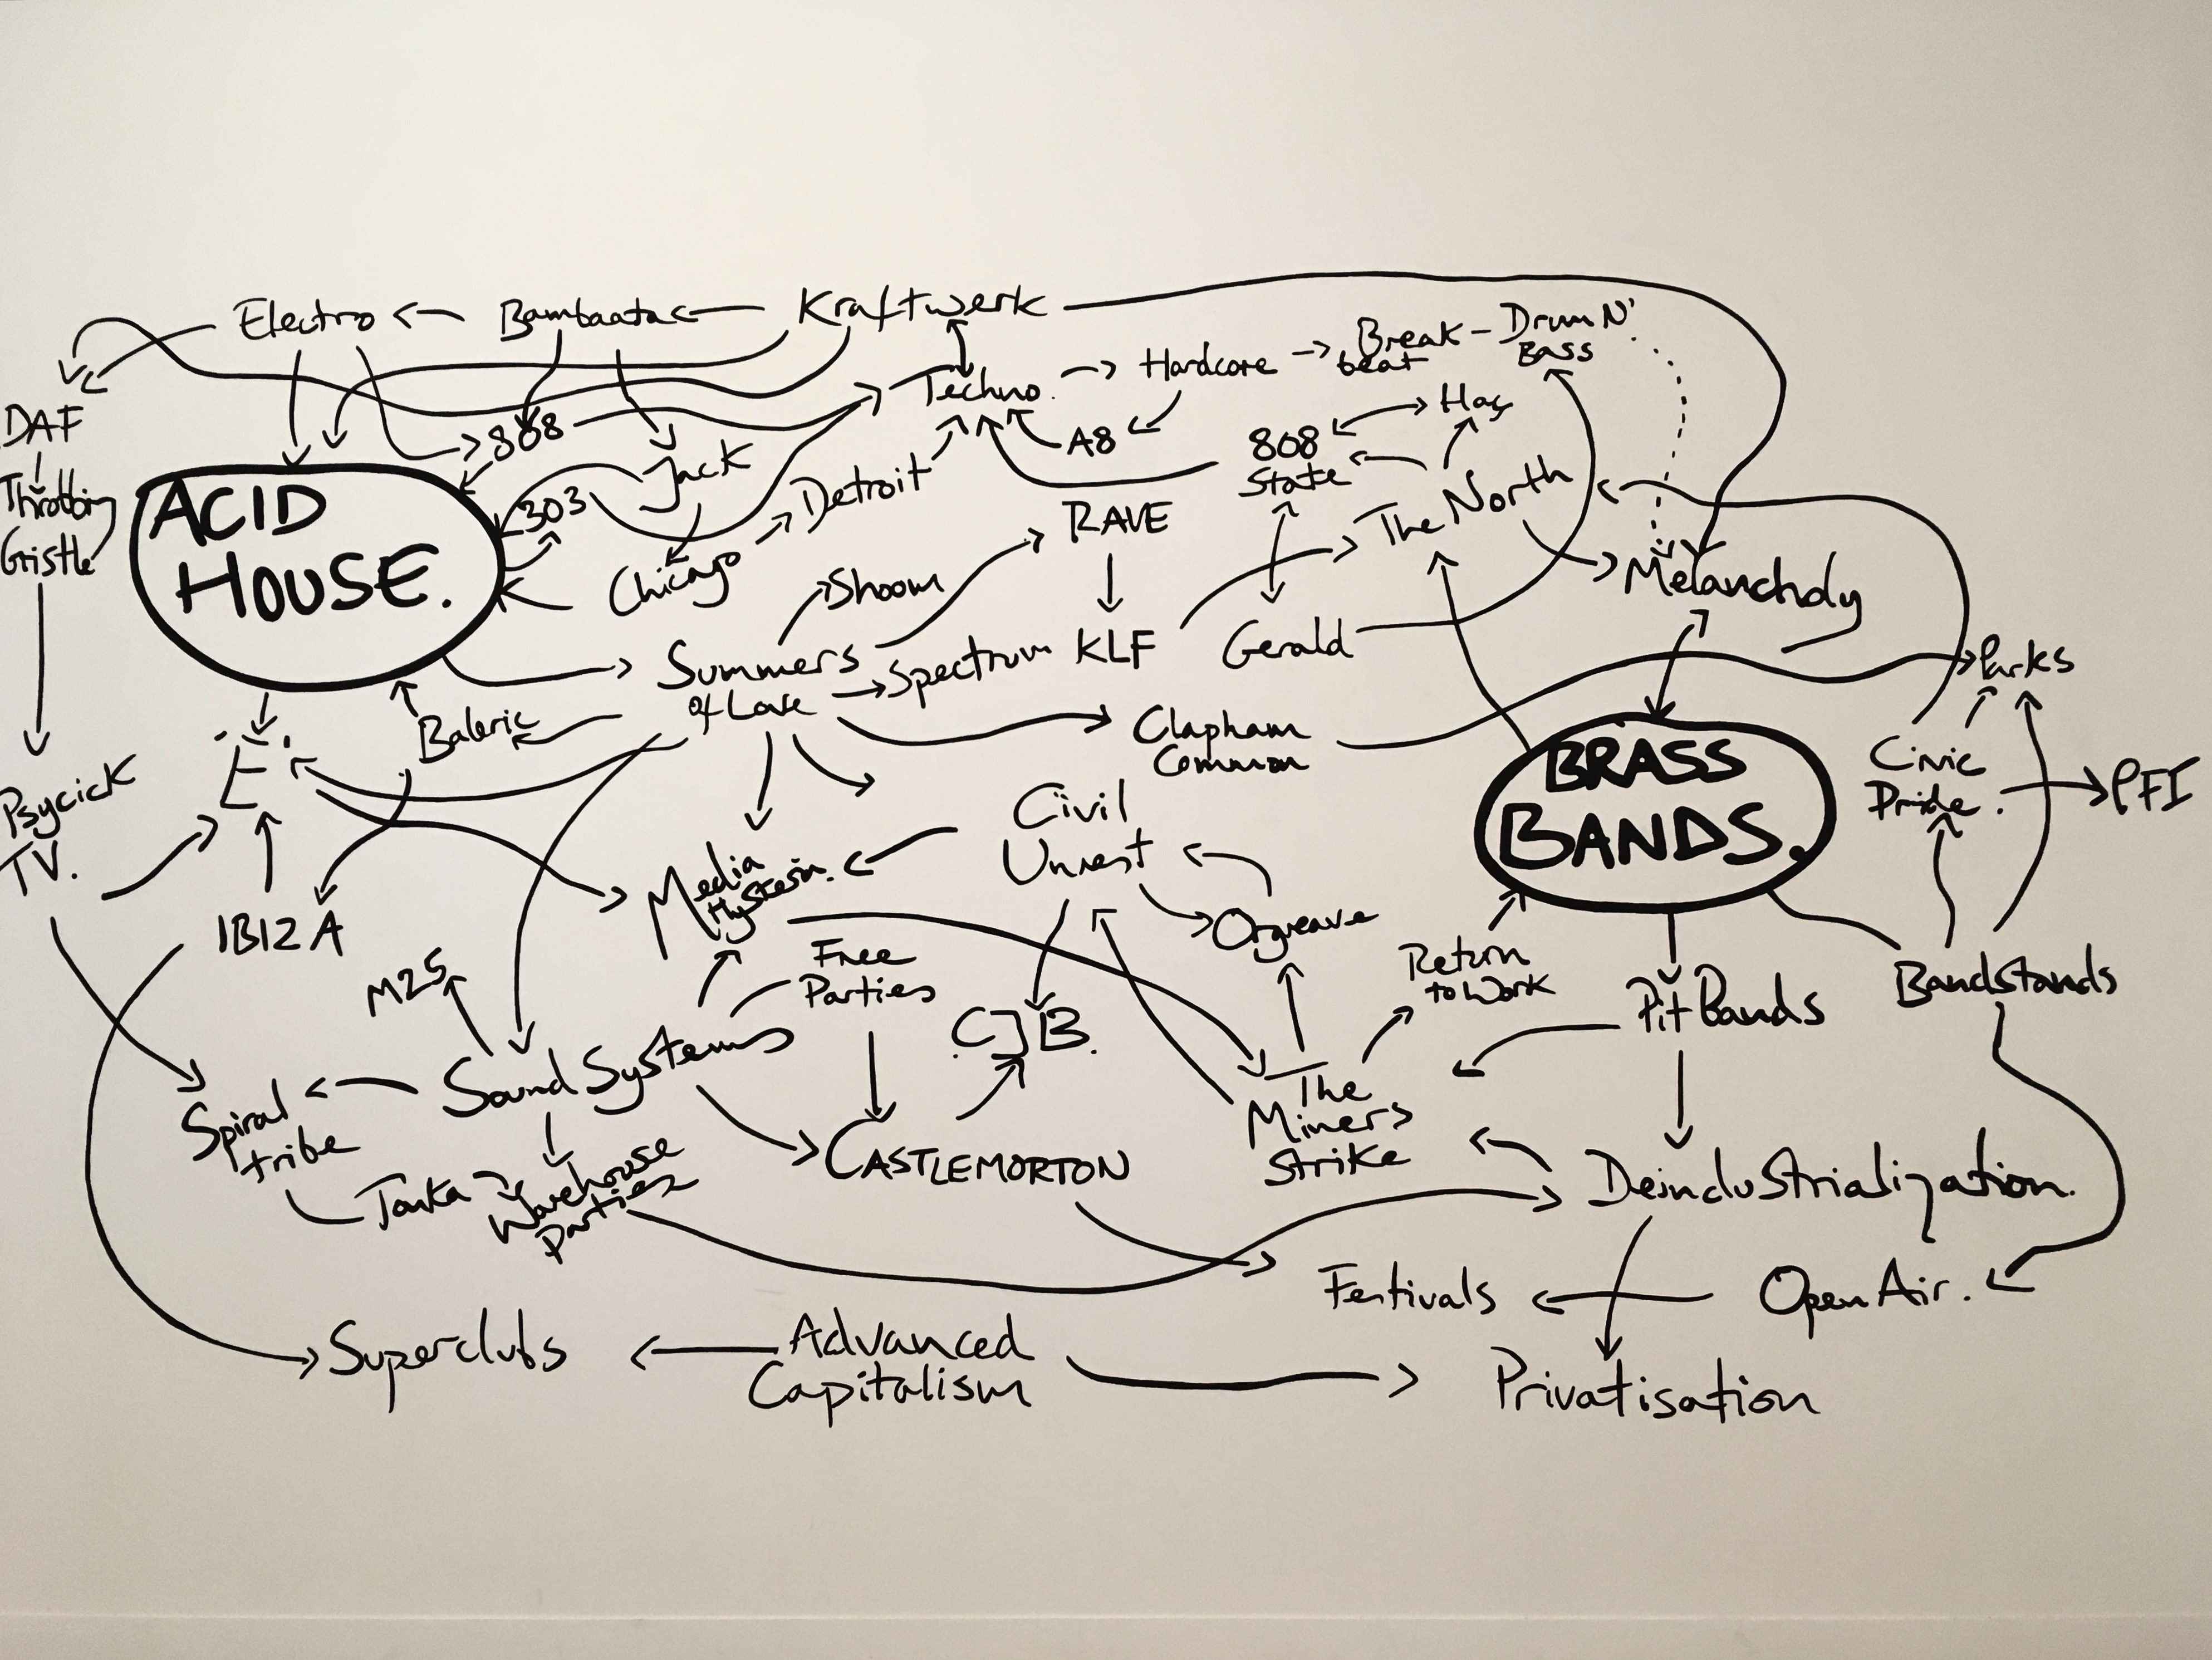 Electro
Bambaata
Kraftwerk
DAF
Throbbing
Gristle
Psycick
TV.
ACID
HOUSE.
808
303
Jack
Chicago
Detroit
Techno.
Hardcore
Break
beat
Drum N'
Bass
A8
808
State
Haç
The North
Melancholy
RAVE
KLF
Gerald
Shoom
Summers
of Love
Spectrum
Clapham
Common
Parks
Baleric
'E'
IBIZA
Media
Hysteria.
Civil
Unrest
Orgreave
BRASS
BANDS.
Civic
Pride.
PFI
M25
Free
Parties
CJB.
Return
to Work
Pit Bands
Bandstands
Sound Systems
Spiral
tribe
Tonka
Warehouse
Parties
CASTLEMORTON
The
Miners
Strike
Deindustrialization.
Festivals
Open Air.
Superclubs
Advanced
Capitalism
Privatisation